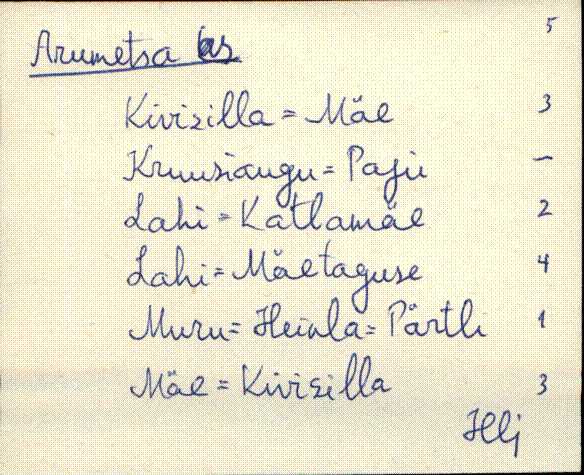 Arumetsa as 5
Kivisilla = Mäe 3
Kruusiaugu = Paju –
Lahi = Katlamäe 2
Lahi = Mäetaguse 4
Muru = Heinla = Pärtli 1
Mäe = Kivisilla 3
Hlj